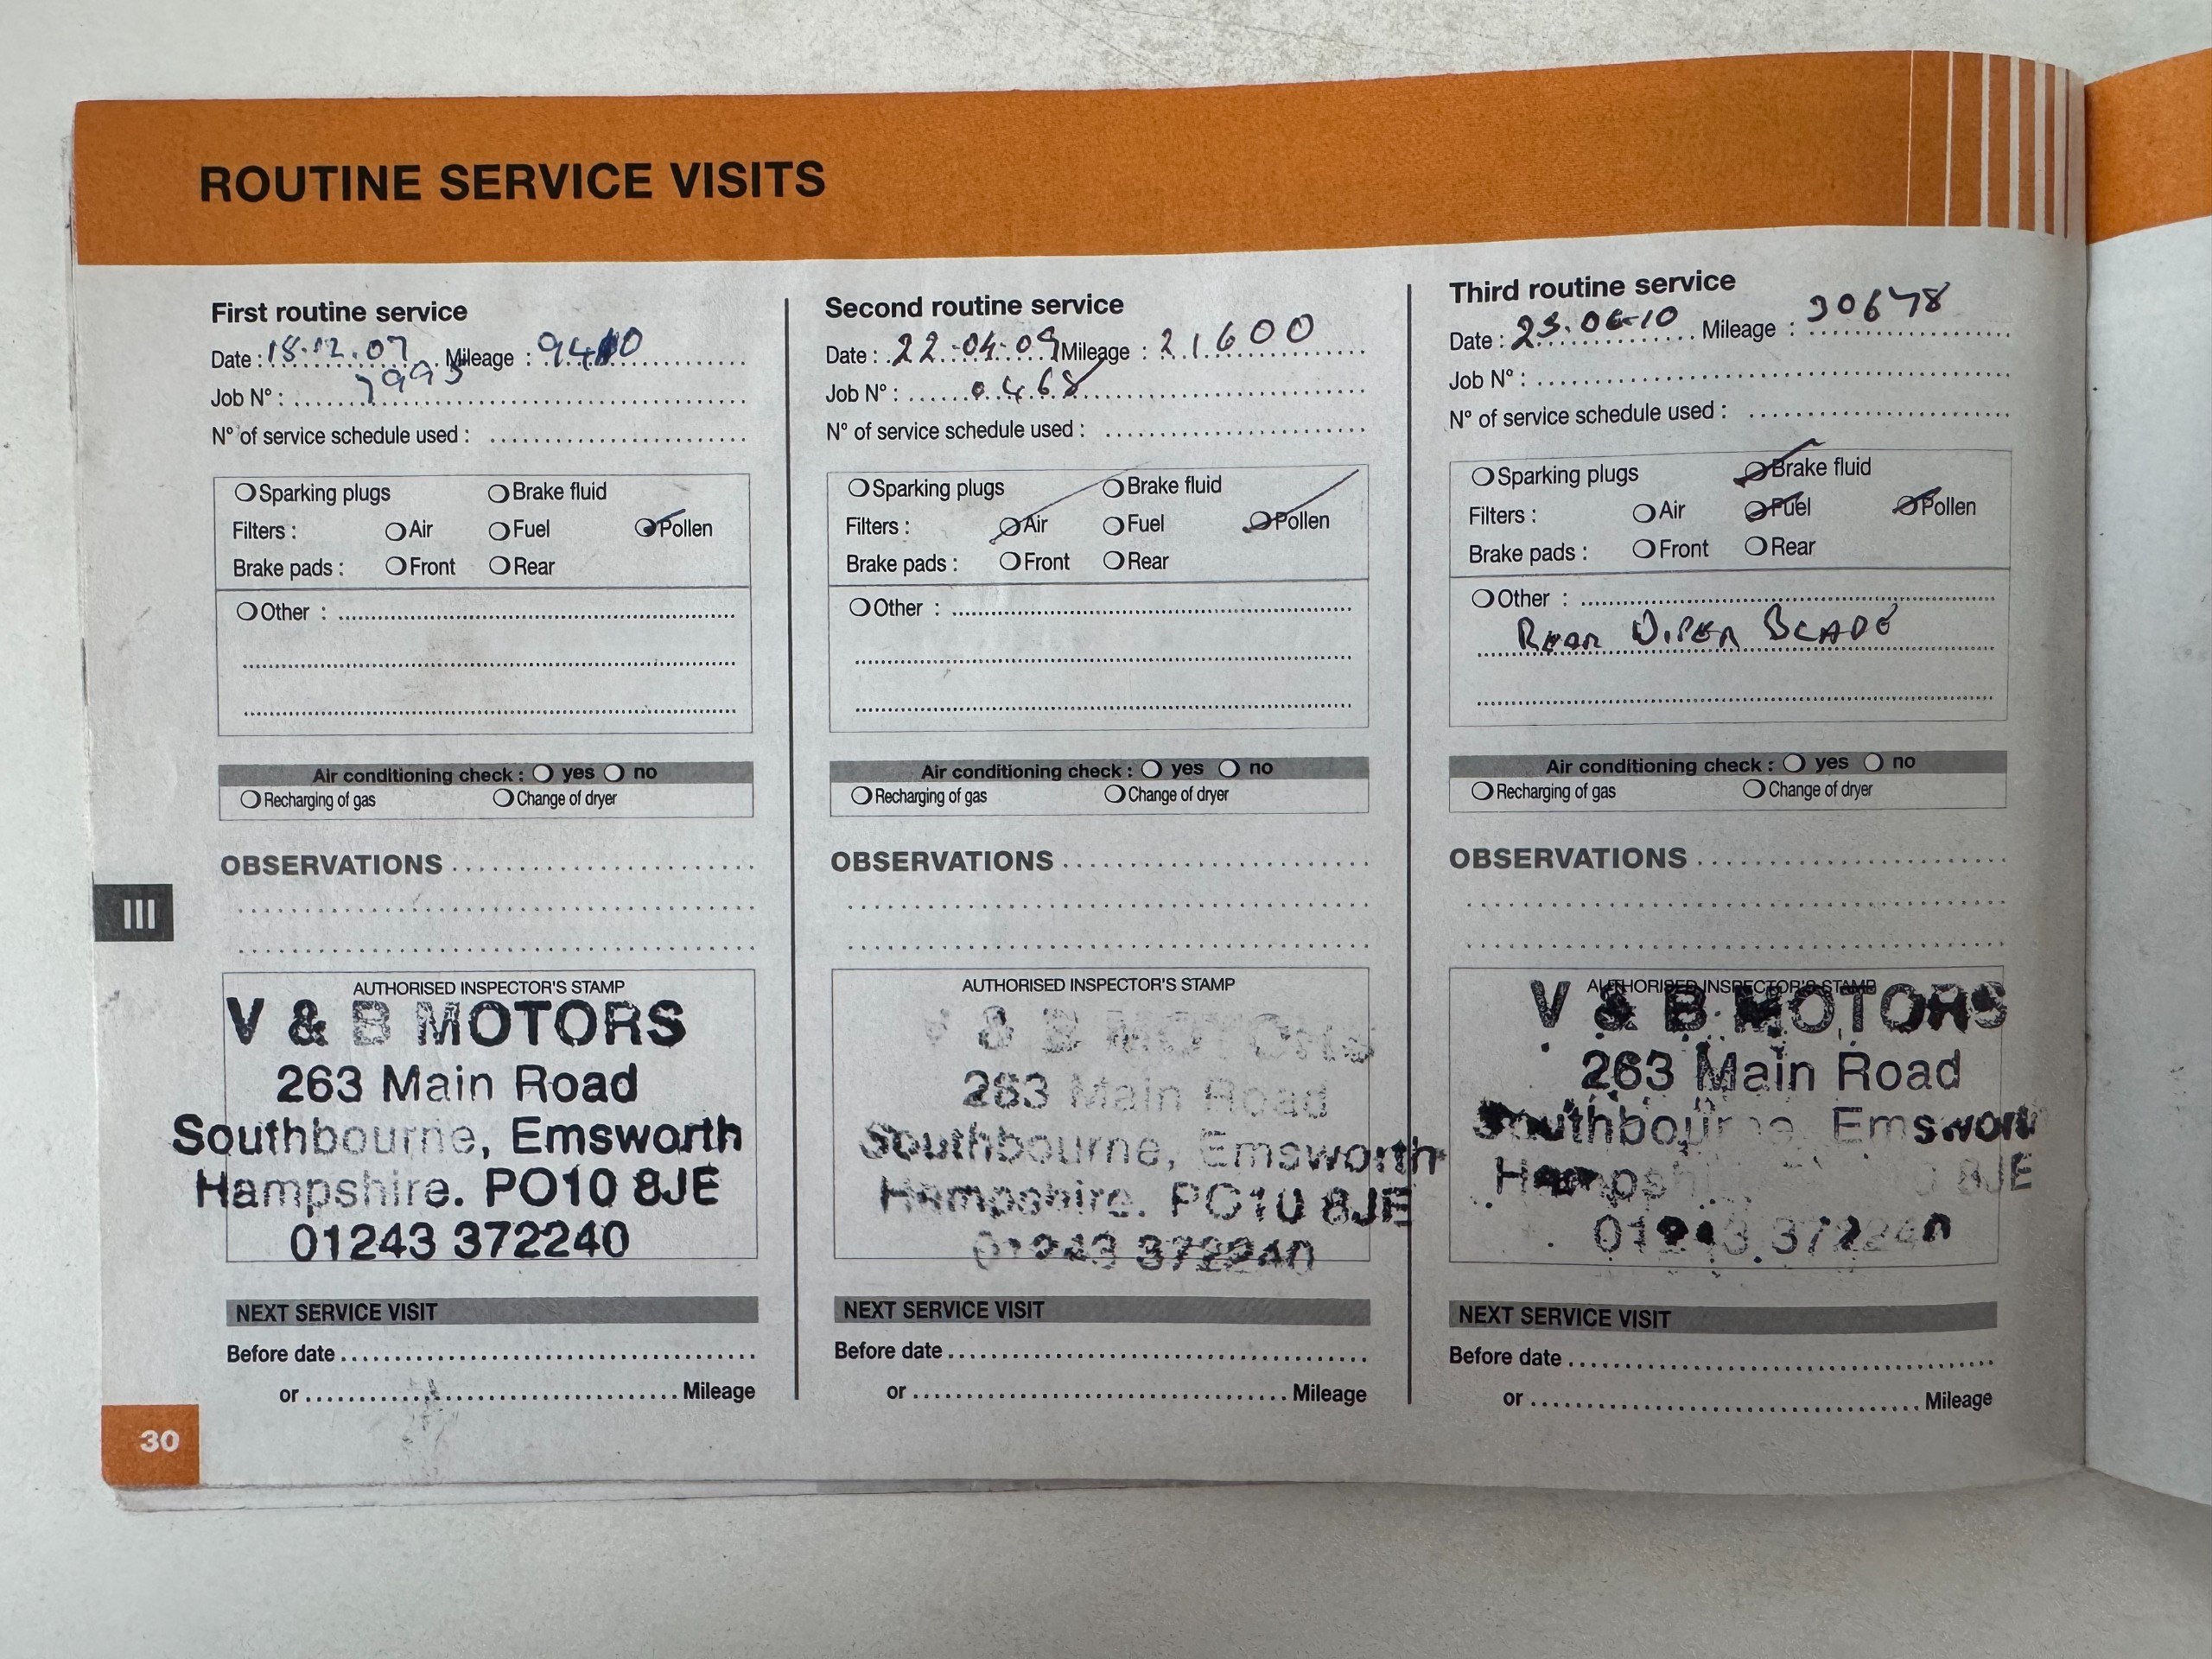 ROUTINE SERVICE VISITS
First routine service
Date : 18.12.07 Mileage : 9410
Job N° : 7995
N° of service schedule used :
Sparking plugs Brake fluid
Filters : Air Fuel Pollen
Brake pads : Front Rear
Other :
Air conditioning check : yes no
Recharging of gas Change of dryer
OBSERVATIONS
AUTHORISED INSPECTOR'S STAMP
V & B MOTORS
263 Main Road
Southbourne, Emsworth
Hampshire. PO10 8JE
01243 372240
NEXT SERVICE VISIT
Before date
or Mileage
Second routine service
Date : 22-04-09 Mileage : 21600
Job N° : 0468
N° of service schedule used :
Sparking plugs Brake fluid
Filters : Air Fuel Pollen
Brake pads : Front Rear
Other :
Air conditioning check : yes no
Recharging of gas Change of dryer
OBSERVATIONS
AUTHORISED INSPECTOR'S STAMP
V & B MOTORS
263 Main Road
Southbourne, Emsworth
Hampshire. PO10 8JE
01243 372240
NEXT SERVICE VISIT
Before date
or Mileage
Third routine service
Date : 23.06-10 Mileage : 30678
Job N° :
N° of service schedule used :
Sparking plugs Brake fluid
Filters : Air Fuel Pollen
Brake pads : Front Rear
Other :
REAR WIPER BLADE
Air conditioning check : yes no
Recharging of gas Change of dryer
OBSERVATIONS
AUTHORISED INSPECTOR'S STAMP
V & B MOTORS
263 Main Road
Southbourne, Emswort
Hampsh 0 8JE
01243 372240
NEXT SERVICE VISIT
Before date
or Mileage
III
30